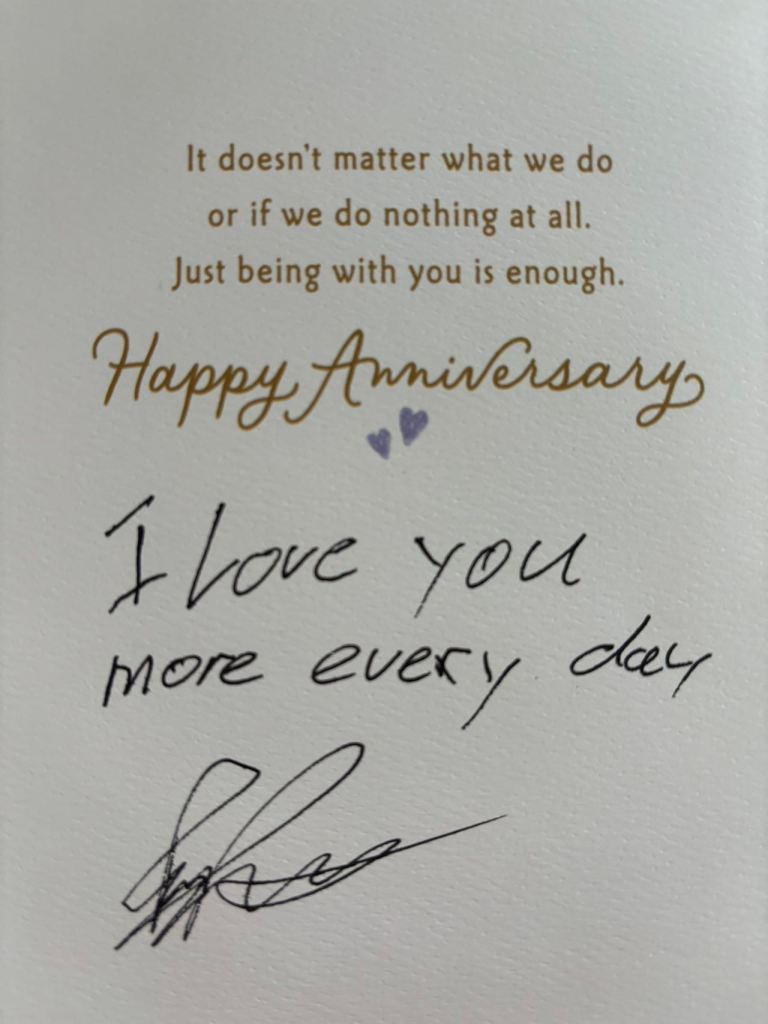 It doesn't matter what we do
or if we do nothing at all.
Just being with you is enough.
Happy Anniversary
I love you
more every day